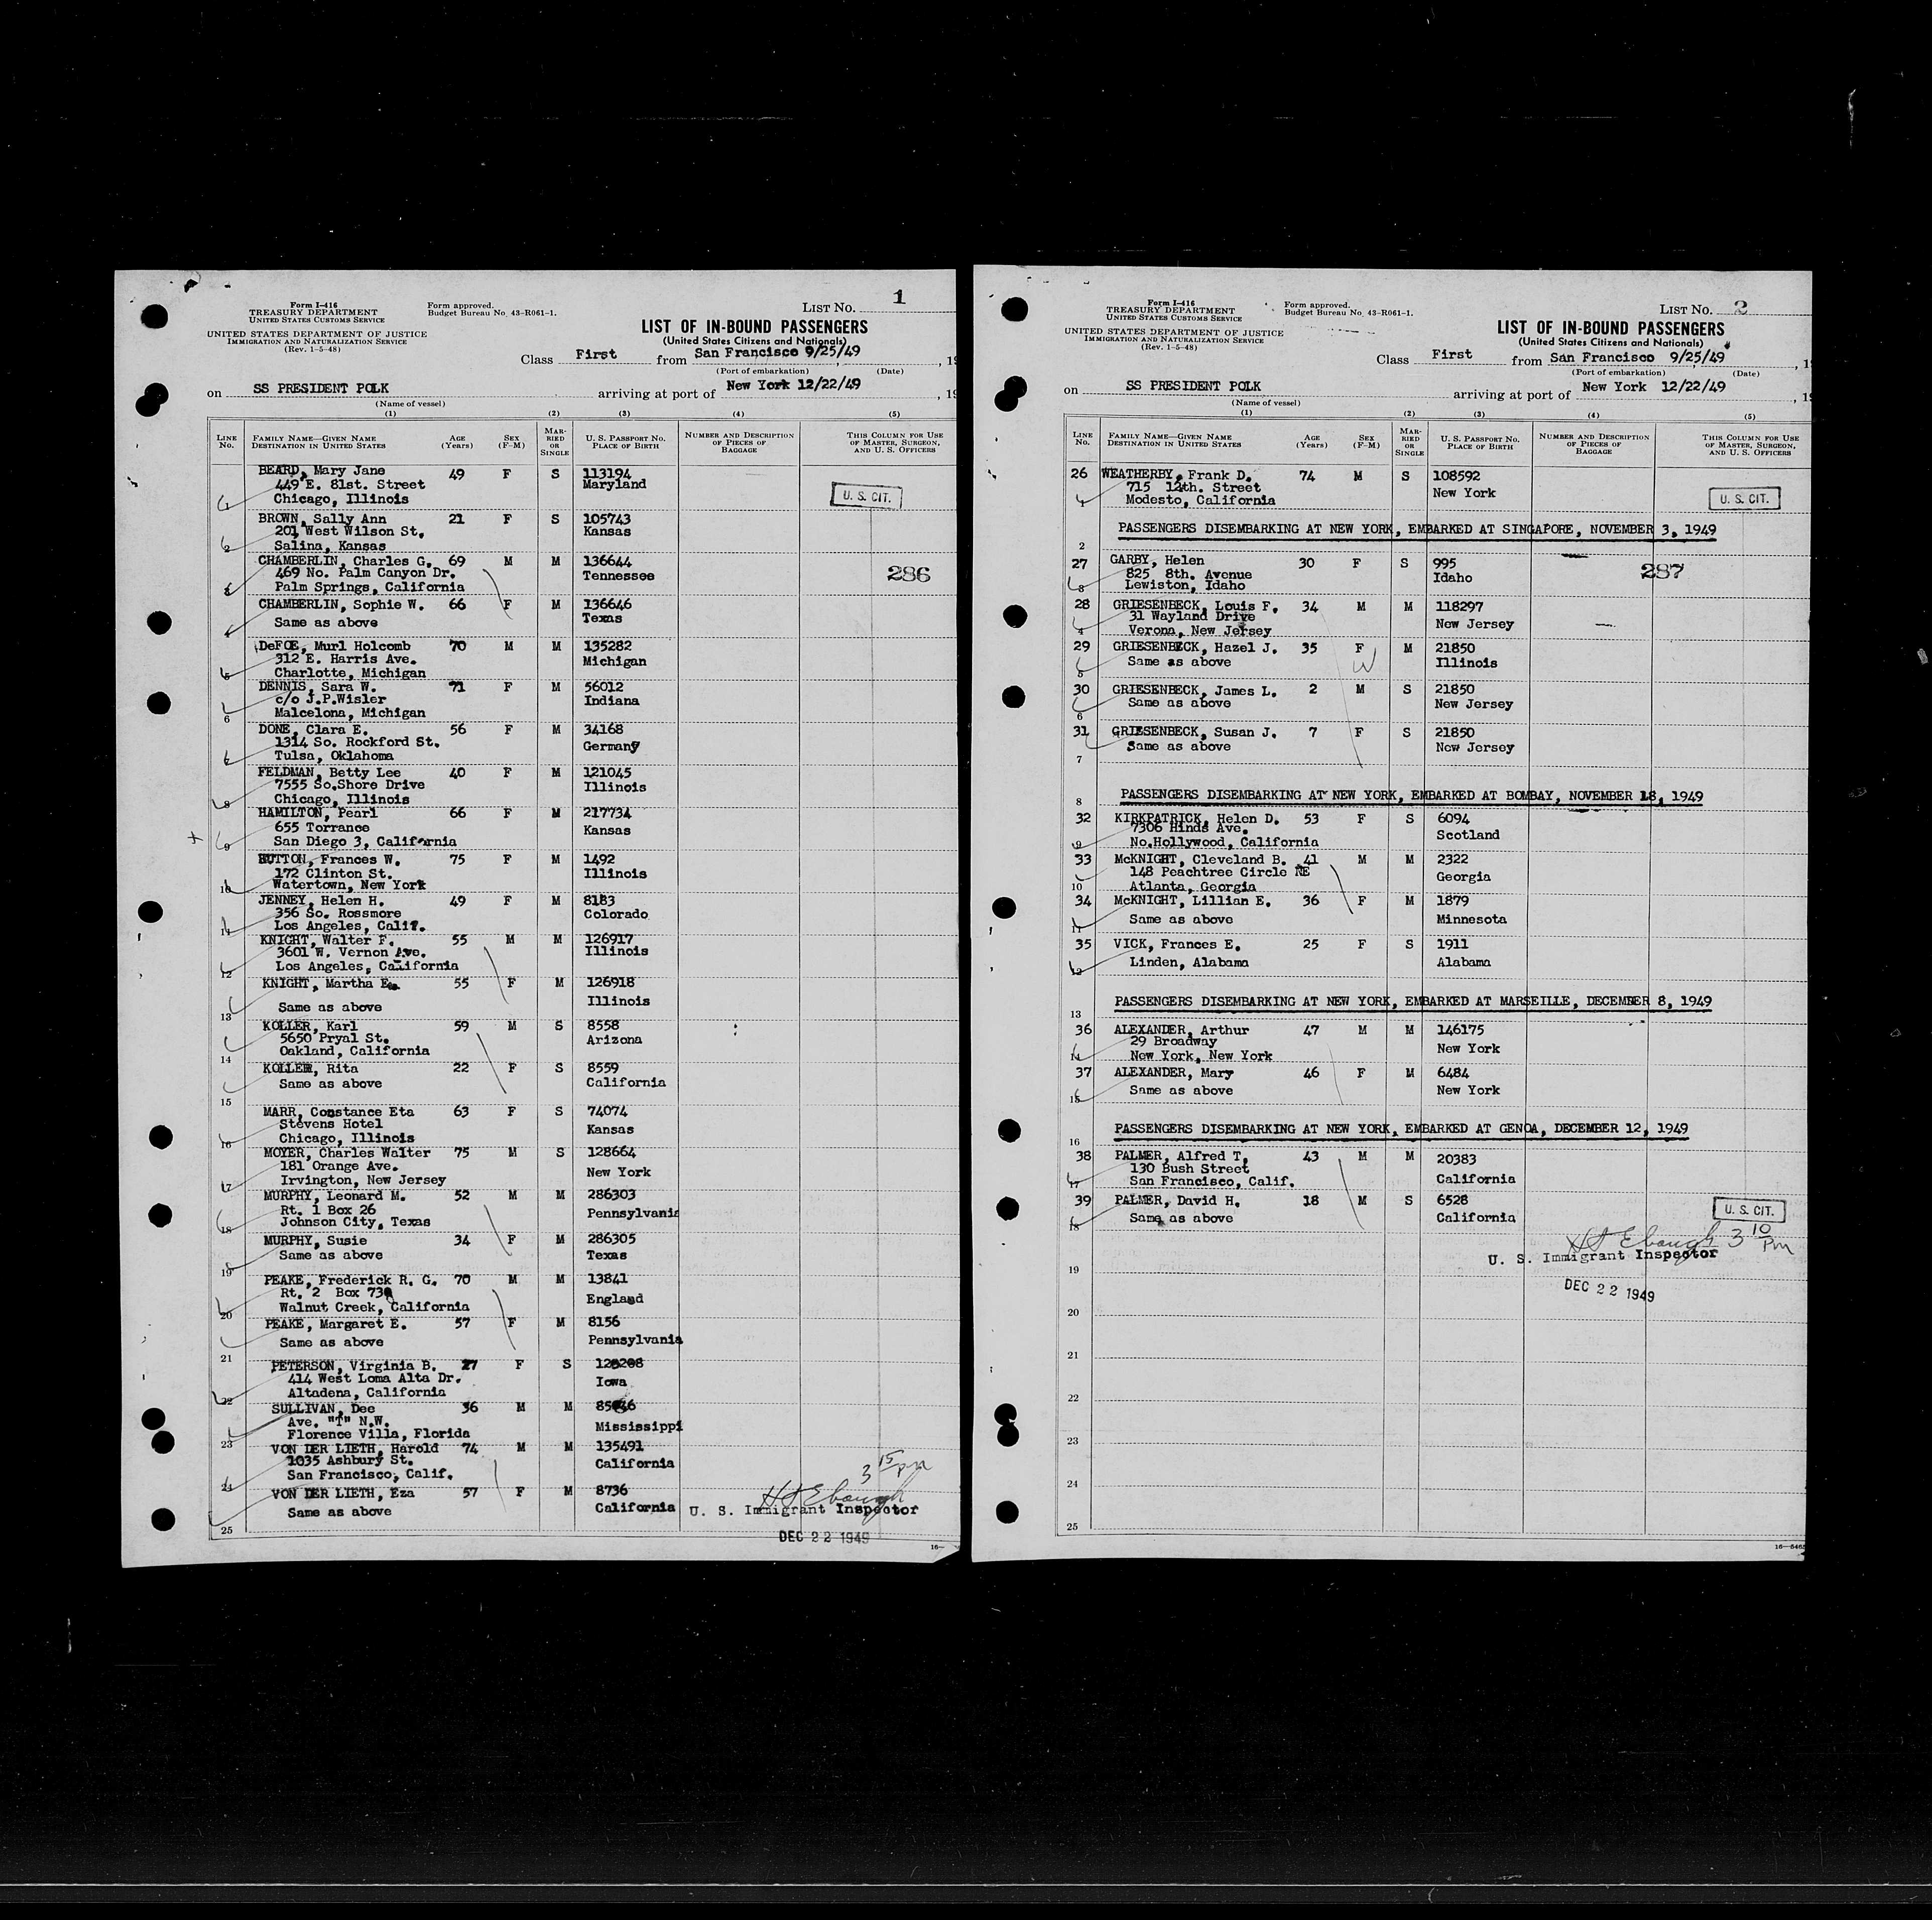 Form I-416
TREASURY DEPARTMENT
UNITED STATES CUSTOMS SERVICE
UNITED STATES DEPARTMENT OF JUSTICE
IMMIGRATION AND NATURALIZATION SERVICE
(Rev. 1-5-48)
Form approved.
Budget Bureau No. 43-R061-1.
LIST No. 1
LIST OF IN-BOUND PASSENGERS
(United States Citizens and Nationals)
Class First from San Francisco 9/25/49, 19
(Port of embarkation) (Date)
on SS PRESIDENT POLK arriving at port of New York 12/22/49, 19
(Name of vessel)
(1) (2) (3) (4) (5)
LINE No. FAMILY NAME—GIVEN NAME DESTINATION IN UNITED STATES AGE (Years) SEX (F-M) MARRIED OR SINGLE U. S. PASSPORT No. PLACE OF BIRTH NUMBER AND DESCRIPTION OF PIECES OF BAGGAGE THIS COLUMN FOR USE OF MASTER, SURGEON, AND U. S. OFFICERS
BEARD, Mary Jane 49 F S 113194
449 E. 81st. Street Maryland
Chicago, Illinois U. S. CIT.
BROWN, Sally Ann 21 F S 105743
201 West Wilson St. Kansas
2 Salina, Kansas
CHAMBERLIN, Charles G. 69 M M 136644
469 No. Palm Canyon Dr. Tennessee 286
Palm Springs, California
CHAMBERLIN, Sophie W. 66 F M 136646
Same as above Texas
4
DeFOE, Murl Holcomb 70 M M 135282
312 E. Harris Ave. Michigan
5 Charlotte, Michigan
DENNIS, Sara W. 71 F M 56012
c/o J.P.Wisler Indiana
6 Malcelona, Michigan
DONE, Clara E. 56 F M 34168
1314 So. Rockford St. Germany
Tulsa, Oklahoma
FELDMAN, Betty Lee 40 F M 121045
7555 So.Shore Drive Illinois
8 Chicago, Illinois
HAMILTON, Pearl 66 F M 217734
655 Torrance Kansas
9 San Diego 3, California
HUTTON, Frances W. 75 F M 1492
172 Clinton St. Illinois
10 Watertown, New York
JENNEY, Helen H. 49 F M 8183
356 So. Rossmore Colorado
11 Los Angeles, Calif.
KNIGHT, Walter F. 55 M M 126917
3601 W. Vernon Ave. Illinois
12 Los Angeles, California
KNIGHT, Martha E. 55 F M 126918
Same as above Illinois
13
KOLLER, Karl 59 M S 8558
5650 Pryal St. Arizona
14 Oakland, California
KOLLER, Rita 22 F S 8559
Same as above California
15
MARR, Constance Eta 63 F S 74074
Stevens Hotel Kansas
16 Chicago, Illinois
MOYER, Charles Walter 75 M S 128664
181 Orange Ave. New York
17 Irvington, New Jersey
MURPHY, Leonard M. 52 M M 286303
Rt. 1 Box 26 Pennsylvania
18 Johnson City, Texas
MURPHY, Susie 34 F M 286305
Same as above Texas
19
PEAKE, Frederick R. G. 70 M M 13841
Rt. 2 Box 730 England
20 Walnut Creek, California
PEAKE, Margaret E. 57 F M 8156
Same as above Pennsylvania
21
PETERSON, Virginia B. 27 F S
414 West Loma Alta Dr. Iowa
22 Altadena, California
SULLIVAN, Dee 36 M M
Ave. "T" N.W. Mississippi
23 Florence Villa, Florida
VON DER LIETH, Harold 74 M M 135491
1035 Ashbury St. California
24 San Francisco, Calif.
VON DER LIETH, Eza 57 F M 8736
Same as above California
25
3 15 pm
H J Ebaugh
U. S. Immigrant Inspector
DEC 22 1949
16—
Form I-416
TREASURY DEPARTMENT
UNITED STATES CUSTOMS SERVICE
UNITED STATES DEPARTMENT OF JUSTICE
IMMIGRATION AND NATURALIZATION SERVICE
(Rev. 1-5-48)
Form approved.
Budget Bureau No. 43-R061-1.
LIST No. 2
LIST OF IN-BOUND PASSENGERS
(United States Citizens and Nationals)
Class First from San Francisco 9/25/49, 1
(Port of embarkation) (Date)
on SS PRESIDENT POLK arriving at port of New York 12/22/49, 19
(Name of vessel)
(1) (2) (3) (4) (5)
LINE No. FAMILY NAME—GIVEN NAME DESTINATION IN UNITED STATES AGE (Years) SEX (F-M) MARRIED OR SINGLE U. S. PASSPORT No. PLACE OF BIRTH NUMBER AND DESCRIPTION OF PIECES OF BAGGAGE THIS COLUMN FOR USE OF MASTER, SURGEON, AND U. S. OFFICERS
26 WEATHERBY, Frank D. 74 M S 108592
715 12th. Street New York
1 Modesto, California U. S. CIT.
PASSENGERS DISEMBARKING AT NEW YORK, EMBARKED AT SINGAPORE, NOVEMBER 3, 1949
2
27 GARBY, Helen 30 F S 995
825 8th. Avenue Idaho 287
3 Lewiston, Idaho
28 GRIESENBECK, Louis F. 34 M M 118297
31 Wayland Drive New Jersey
4 Verona, New Jersey
29 GRIESENBECK, Hazel J. 35 F M 21850
Same as above W Illinois
5
30 GRIESENBECK, James L. 2 M S 21850
Same as above New Jersey
6
31 GRIESENBECK, Susan J. 7 F S 21850
Same as above New Jersey
7
PASSENGERS DISEMBARKING AT NEW YORK, EMBARKED AT BOMBAY, NOVEMBER 18, 1949
8
32 KIRKPATRICK, Helen D. 53 F S 6094
7306 Hinds Ave. Scotland
9 No.Hollywood, California
33 McKNIGHT, Cleveland B. 41 M M 2322
148 Peachtree Circle NE Georgia
10 Atlanta, Georgia
34 McKNIGHT, Lillian E. 36 F M 1879
Same as above Minnesota
11
35 VICK, Frances E. 25 F S 1911
12 Linden, Alabama Alabama
PASSENGERS DISEMBARKING AT NEW YORK, EMBARKED AT MARSEILLE, DECEMBER 8, 1949
13
36 ALEXANDER, Arthur 47 M M 146175
29 Broadway New York
14 New York, New York
37 ALEXANDER, Mary 46 F M 6484
Same as above New York
15
PASSENGERS DISEMBARKING AT NEW YORK, EMBARKED AT GENOA, DECEMBER 12, 1949
16
38 PALMER, Alfred T. 43 M M 20383
130 Bush Street California
17 San Francisco, Calif.
39 PALMER, David H. 18 M S 6528
Same as above California U. S. CIT.
18
H J Ebaugh 3 10 Pm
U. S. Immigrant Inspector
19
DEC 22 1949
20
21
22
23
24
25